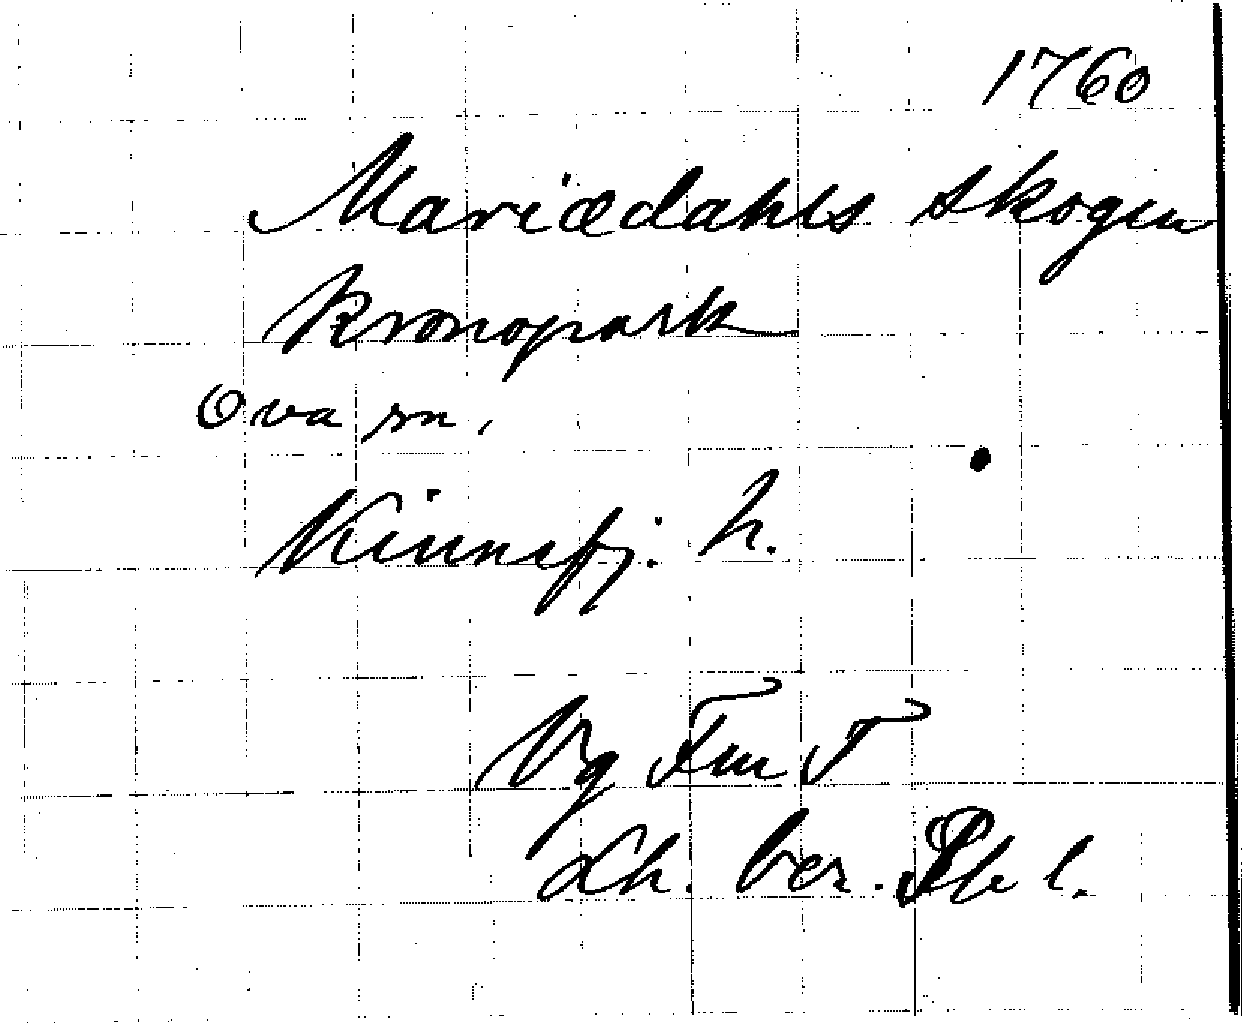 1760
Mariædahls skogen
Kronopark
Ova sn.
Kinnefj. h.
Vg Fm T
Lh. ber.